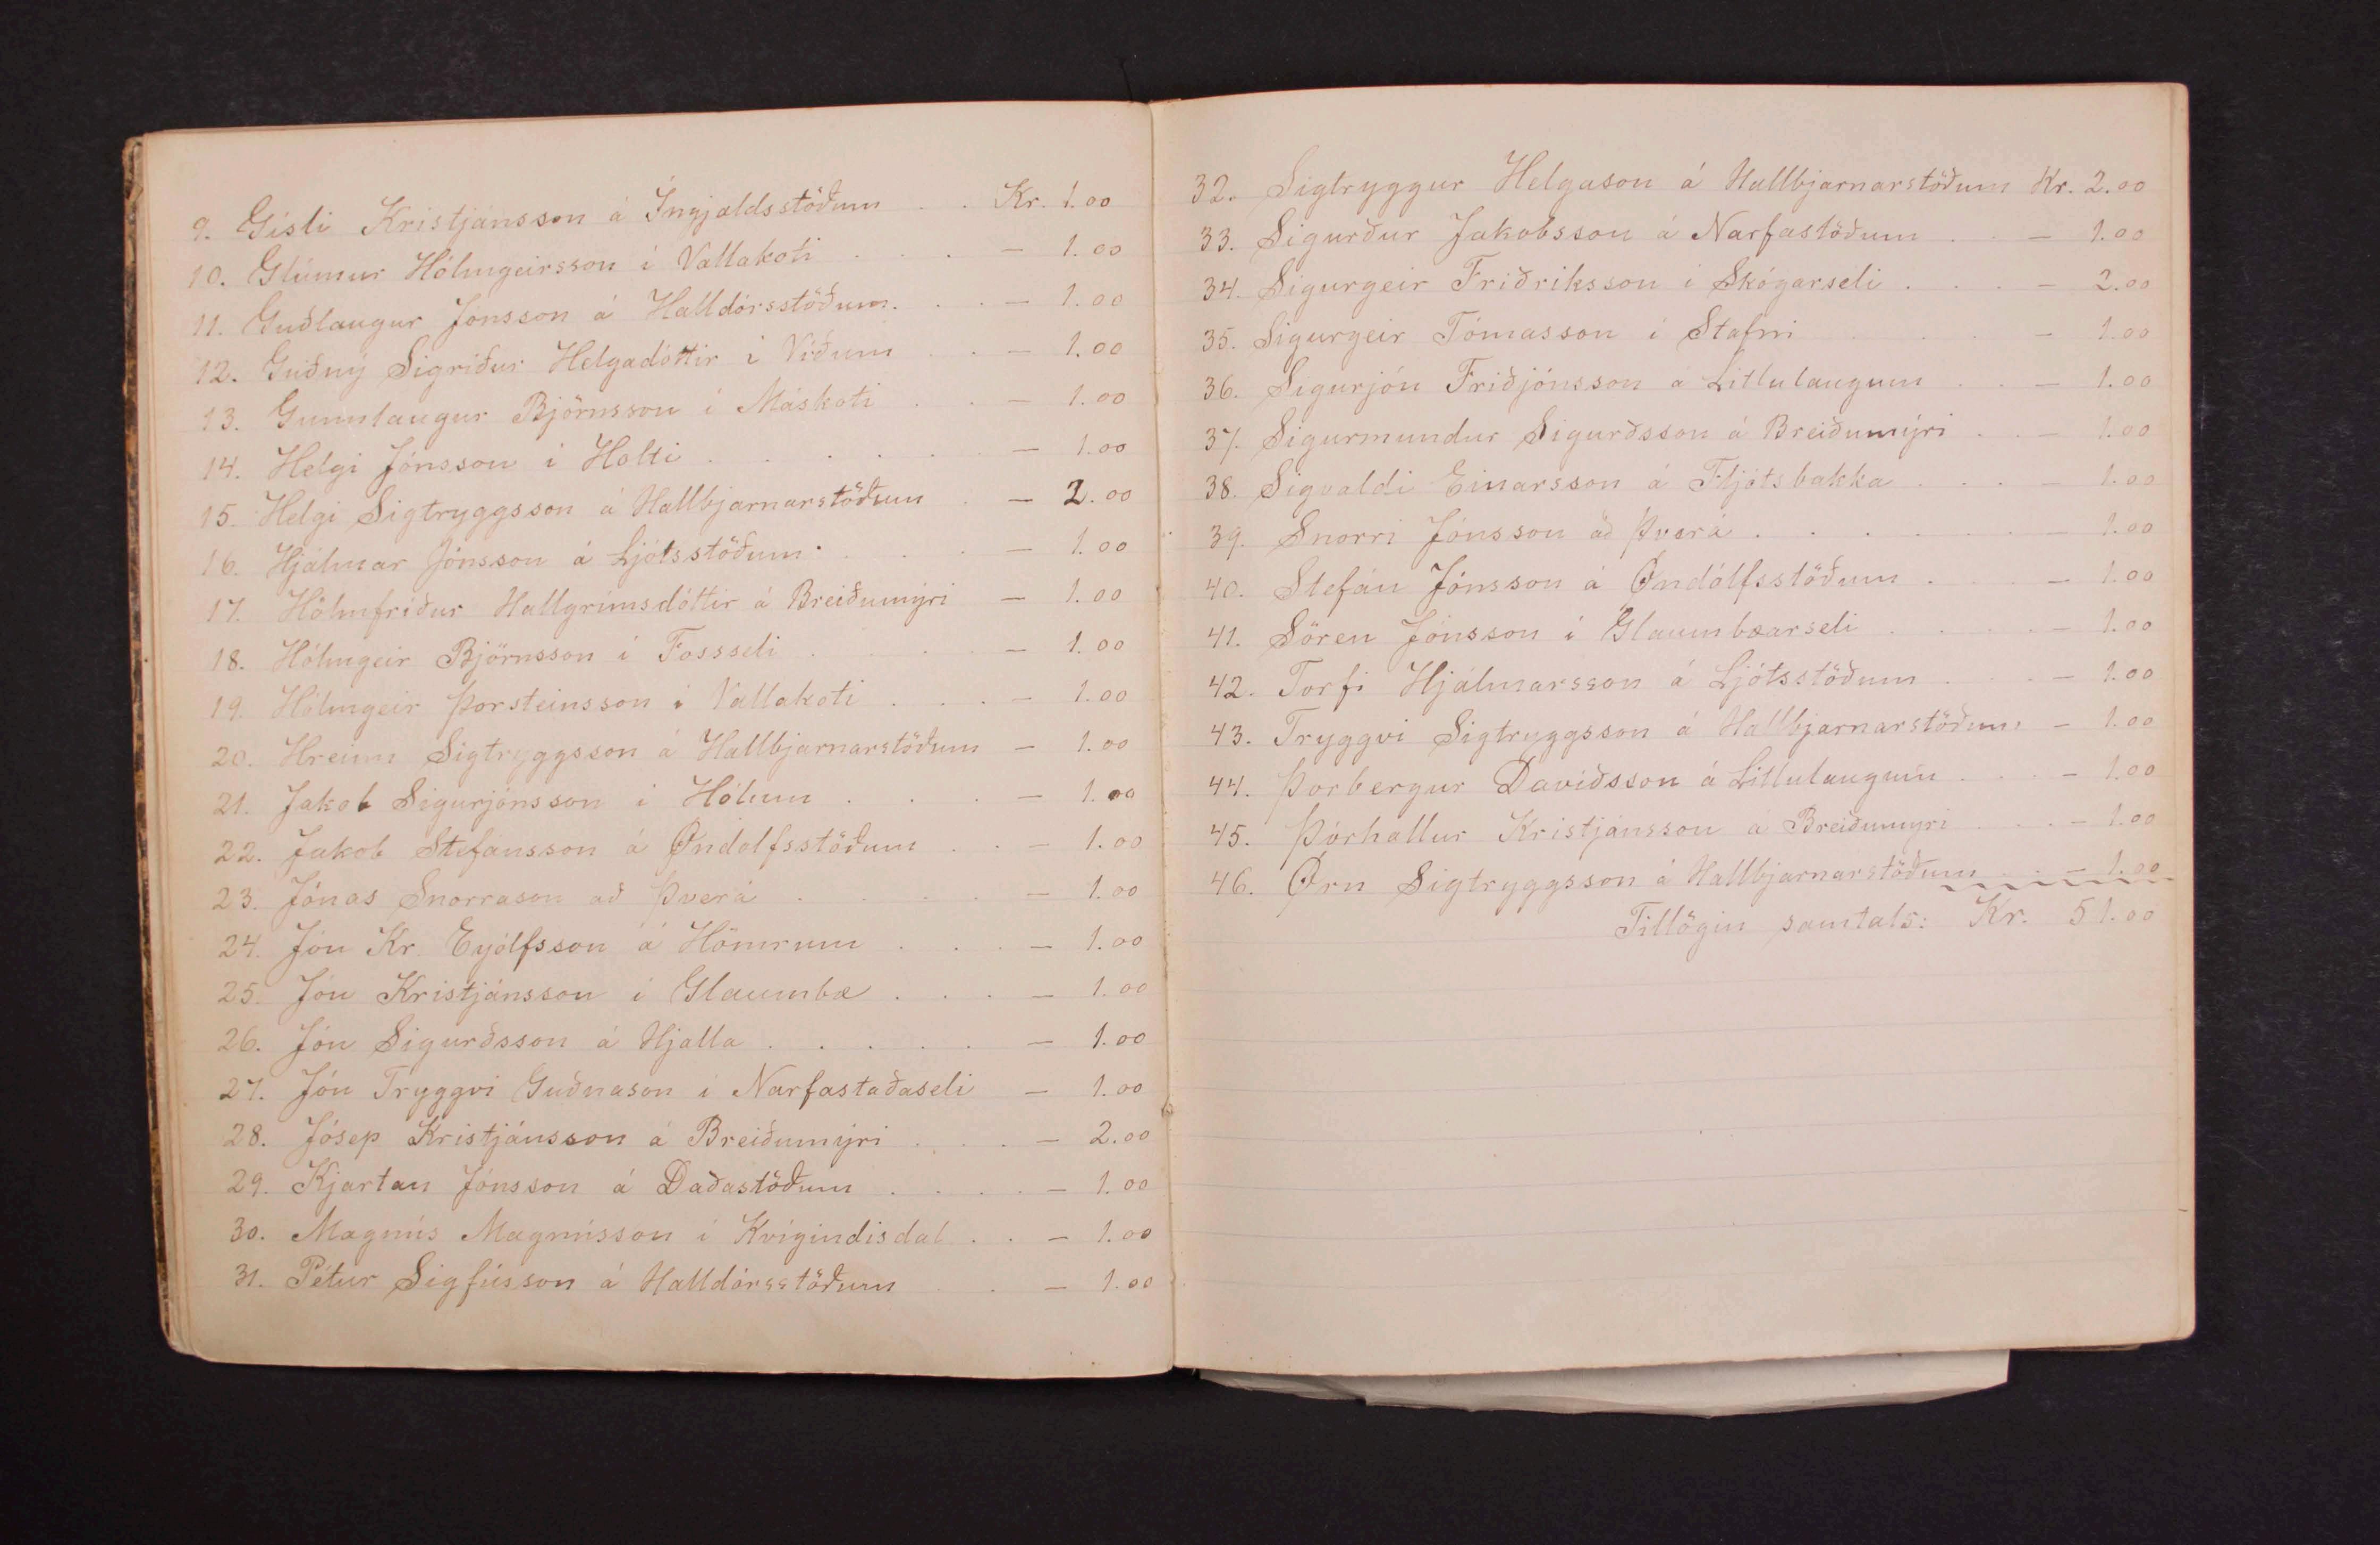 9. Gísli Kristjánsson á Íngjaldsstöðum . . Kr. 1.00
10. Glúmur Hólmgeirsson í Vallakoti . . . — 1.00
11. Guðlaugur Jónsson á Halldórsstöðum . . . — 1.00
12. Guðný Sigríður Helgadóttir í Víðum . . — 1.00
13. Gunnlaugur Björnsson í Máskoti . . — 1.00
14. Helgi Jónsson í Holti . . . . . . — 1.00
15. Helgi Sigtryggsson á Hallbjarnarstöðum . — 2.00
16. Hjálmar Jónsson á Ljótsstöðum . . . . — 1.00
17. Hólmfríður Hallgrímsdóttir á Breiðumýri — 1.00
18. Hólmgeir Björnsson í Fossseli . . . . — 1.00
19. Hólmgeir Þorsteinsson í Vallakoti . . . — 1.00
20. Hreinn Sigtryggsson á Hallbjarnarstöðum — 1.00
21. Jakob Sigurjónsson í Hólum . . . — 1.00
22. Jakob Stefánsson á Öndólfsstöðum . . — 1.00
23. Jónas Snorrason að Þverá . . . . — 1.00
24. Jón Kr. Eyólfsson á Hömrum . . . — 1.00
25. Jón Kristjánsson í Glaumbæ . . . — 1.00
26. Jón Sigurðsson á Hjalla . . . . . — 1.00
27. Jón Tryggvi Guðnason í Narfastaðaseli — 1.00
28. Jósep Kristjánsson á Breiðumýri . . . — 2.00
29. Kjartan Jónsson á Daðastöðum . . . . — 1.00
30. Magnús Magnússon í Kvígindisdal . . — 1.00
31. Pétur Sigfússon á Halldórsstöðum . . — 1.00
32. Sigtryggur Helgason á Hallbjarnarstöðum Kr. 2.00
33. Sigurður Jakobsson á Narfastöðum . . — 1.00
34. Sigurgeir Friðriksson í Skógarseli . . . — 2.00
35. Sigurgeir Tómasson í Stafni . . . . — 1.00
36. Sigurjón Friðjónsson á Litlulaugum . . — 1.00
37. Sigurmundur Sigurðsson á Breiðumýri . . — 1.00
38. Sigvaldi Einarsson á Fljótsbakka . . . — 1.00
39. Snorri Jónsson að Þverá . . . . . . — 1.00
40. Stefán Jónsson á Öndólfsstöðum . . . — 1.00
41. Sören Jónsson í Glaumbæarseli . . . . — 1.00
42. Torfi Hjálmarsson á Ljótsstöðum . . . — 1.00
43. Tryggvi Sigtryggsson á Hallbjarnarstöðum — 1.00
44. Þorbergur Davíðsson á Litlulaugum . . . — 1.00
45. Þórhallur Kristjánsson á Breiðumýri . . . — 1.00
46. Örn Sigtryggsson á Hallbjarnarstöðum . . — 1.00
Tillögin samtals: Kr. 51.00